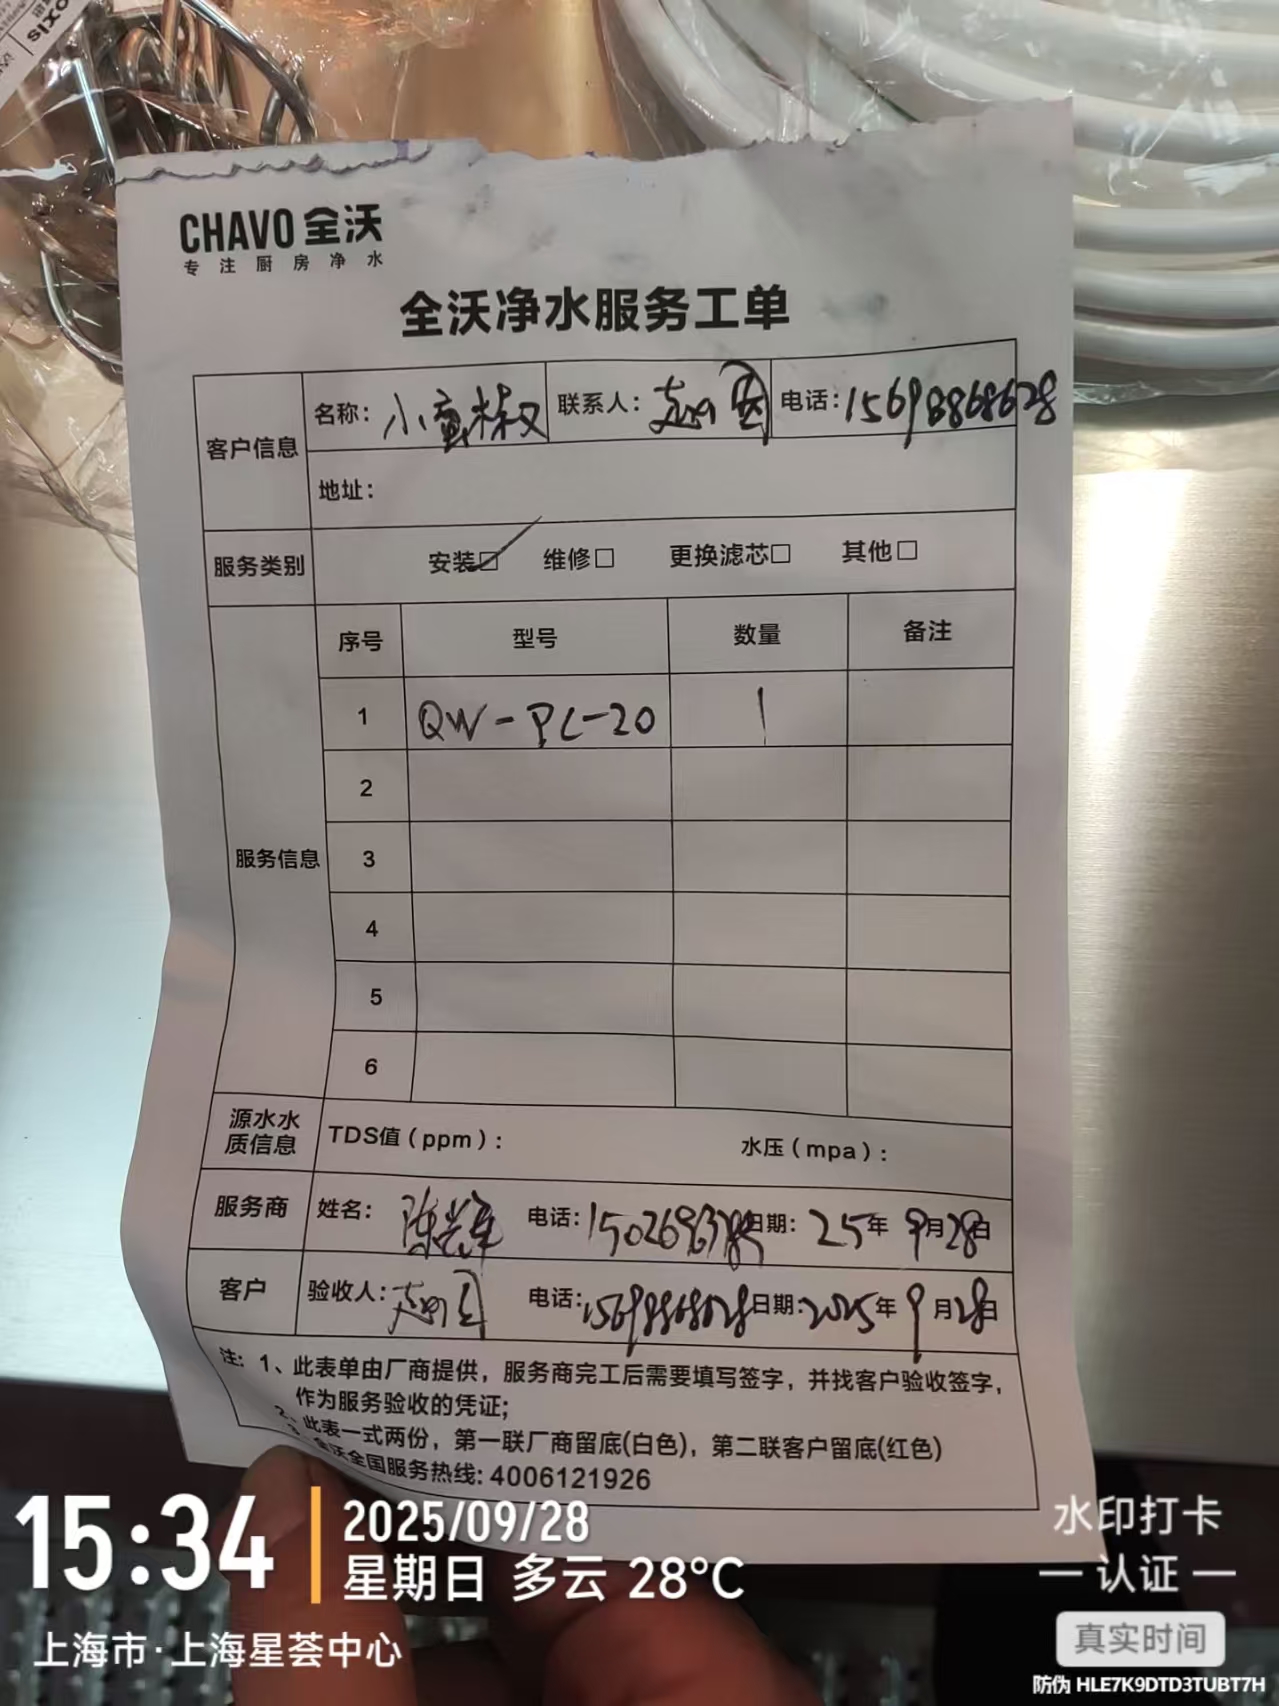 oxis
CHAVO 全沃
专注厨房净水
全沃净水服务工单
客户信息 名称: 小 椒 联系人: 赵 电话: 15698868628
地址:
服务类别 安装☑ 维修□ 更换滤芯□ 其他□
服务信息 序号 型号 数量 备注
1 QW-PL-20 1
2
3
4
5
6
源水水质信息 TDS值(ppm): 水压(mpa):
服务商 姓名: 陈 电话: 日期: 25年 9月28日
客户 验收人: 赵 电话: 15698868628 日期: 2025年 9月28日
注: 1、此表单由厂商提供，服务商完工后需要填写签字，并找客户验收签字，
作为服务验收的凭证;
2、此表一式两份，第一联厂商留底(白色)，第二联客户留底(红色)
3、全沃全国服务热线: 4006121926
15:34
2025/09/28
星期日 多云 28°C
上海市·上海星荟中心
水印打卡
认证
真实时间
防伪 HLE7K9DTD3TUBT7H